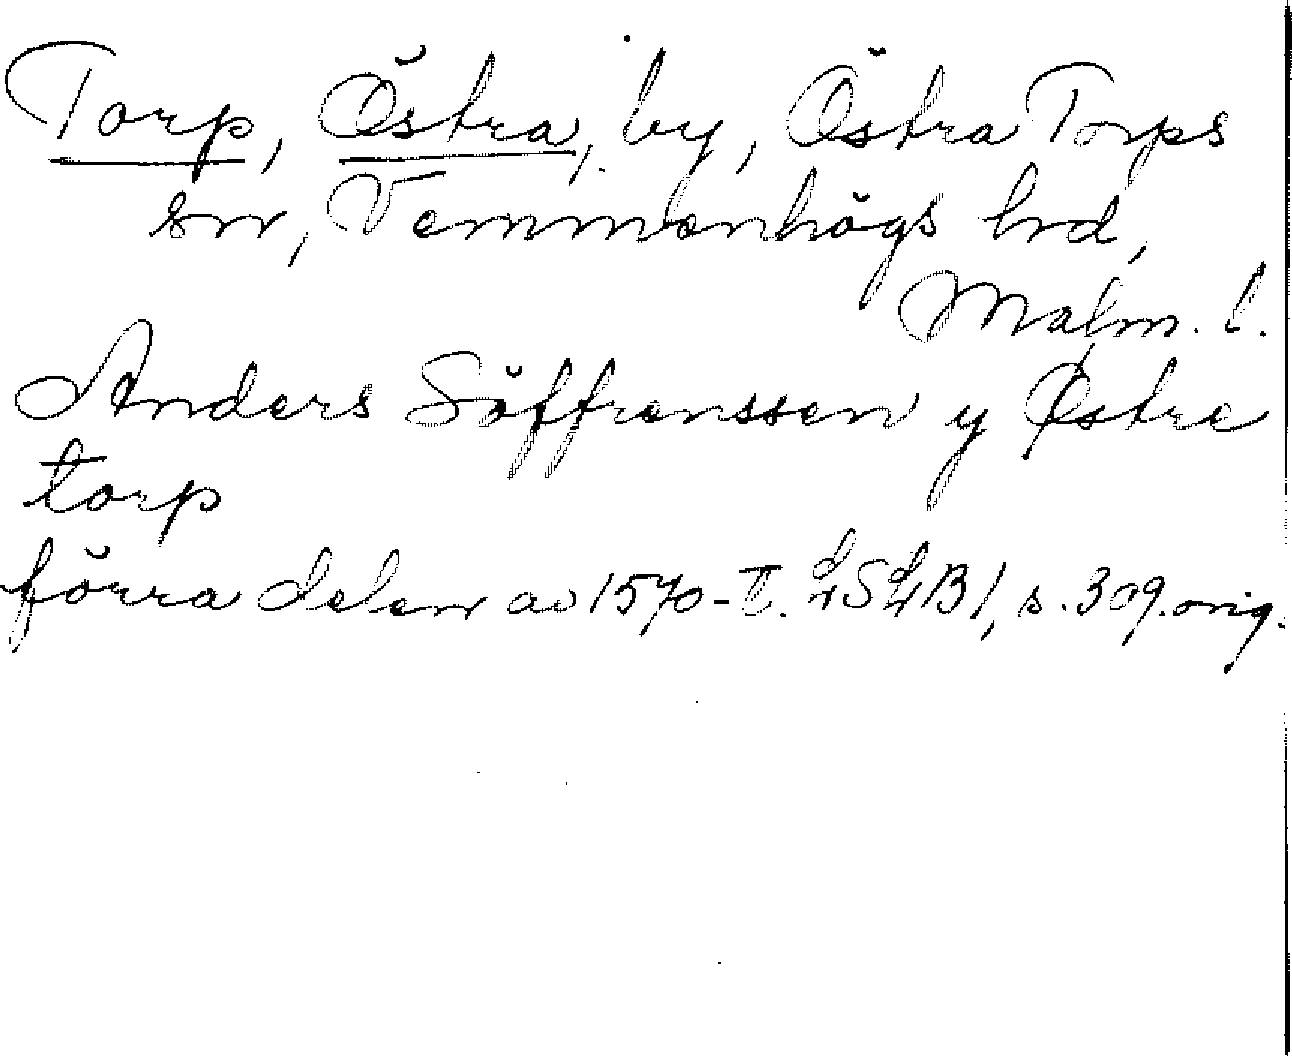 Torp, Östra, by, Östra Torps
sn, Vemmenhögs hrd,
Malm. l.
Anders Söffrenssen y Østre
torp
förra delen av 1570-t. LSLB1, s. 309. orig.